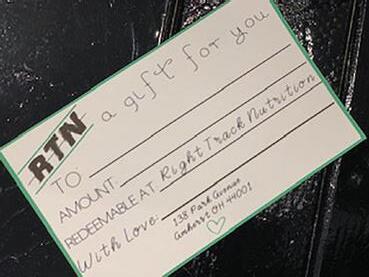 RTN a gift for you
TO
AMOUNT
REDEEMABLE AT: Right Track Nutrition
With Love:
138 Park Avenue
Amherst, OH 44001